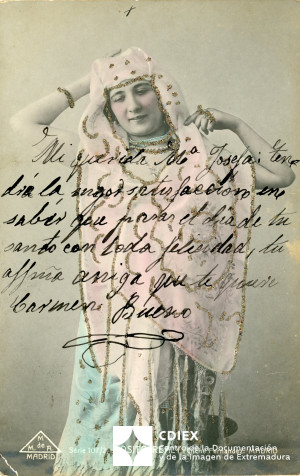 Mi querida Mª Josefa: ten
dré la mayor satisfaccion en
saber que pasas el dia de tu
santo con toda felicidad, tu
affma amiga que te quiere
Carmen Bueno
M
M. de R.
MADRID
CDIEX
Centro de la Documentación
y de la Imagen de Extremadura